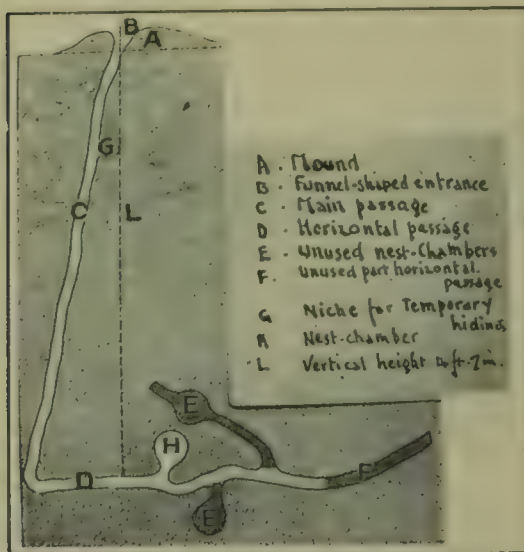 B
A
G
C
L
E
H
D
F
E
A. Mound
B. Funnel-shaped entrance
C. Main passage
D. Horizontal passage
E. Unused nest-Chambers
F. Unused part horizontal.
passage
G Niche for Temporary
hiding
H Nest-chamber
L Vertical height